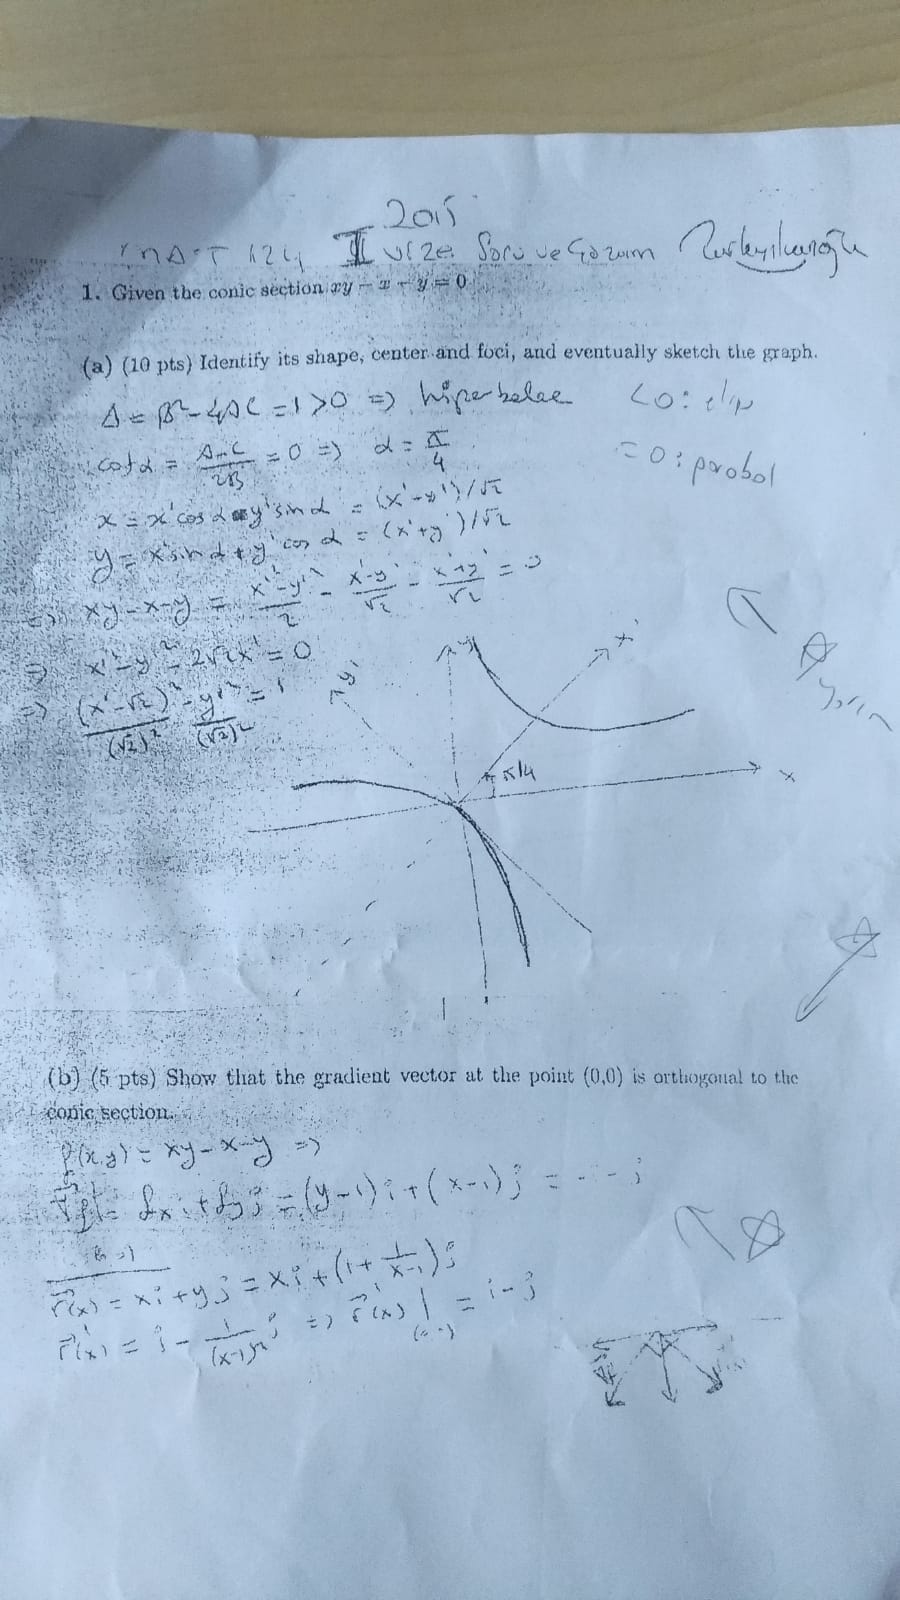 2015
MAT 124 II vize Soru ve Çözüm
1. Given the conic section xy - x - y = 0
(a) (10 pts) Identify its shape, center and foci, and eventually sketch the graph.
Δ = B² - 4AC = 1 > 0 ⇒ hiperbolae <0: elip
cot α = A-C/2B = 0 ⇒ α = π/4 =0: parabol
x = x'cos α - y'sin α = (x'-y')/√2
y = x'sin α + y'cos α = (x'+y')/√2
⇒ xy-x-y = x'²-y'²/2 - x'-y'/√2 - x'+y'/√2 = 0
⇒ x'²-y'²-2√2x' = 0
⇒ (x'-√2)²/(√2)² - y'²/(√2)² = 1
y
x'
y'
π/4
x
(b) (5 pts) Show that the gradient vector at the point (0,0) is orthogonal to the
conic section.
f(x,y) = xy-x-y ⇒
∇f = fx i + fy j = (y-1)i + (x-1)j = -i-j
r(x) = xi + yj = xi + (1 + 1/x-1)j
r'(x) = i - 1/(x-1)² j ⇒ r'(x)| = i-j